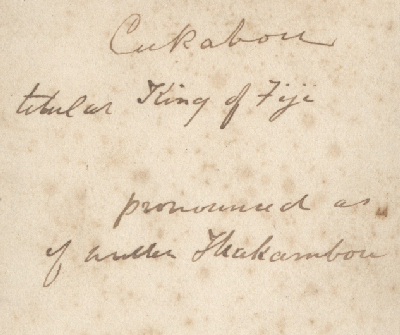 Cukabou
titular King of Fiji
pronounced as
if written Thakambou